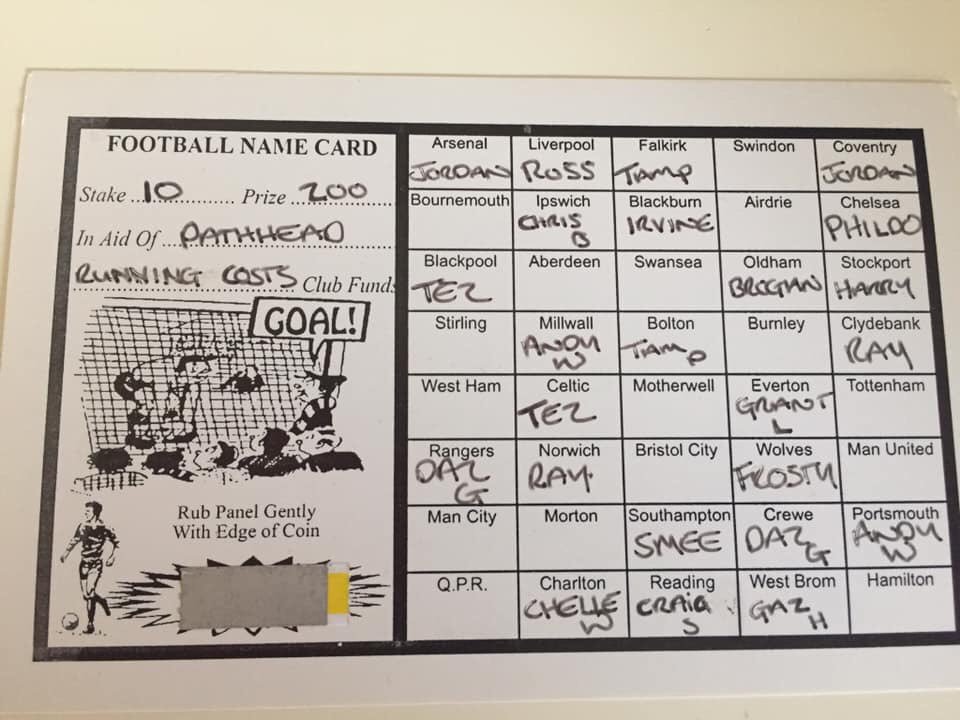 FOOTBALL NAME CARD
Stake ..10............ Prize ..200......
In Aid Of ...PATHHEAD........
RUNNING COSTS Club Funds
GOAL!
Rub Panel Gently
With Edge of Coin
Arsenal Liverpool Falkirk Swindon Coventry
JORDAN ROSS TAMP JORDAN
Bournemouth Ipswich Blackburn Airdrie Chelsea
CHRIS B IRVINE PHILDO
Blackpool Aberdeen Swansea Oldham Stockport
TEZ BROGAN HARRY
Stirling Millwall Bolton Burnley Clydebank
ANDY W TAMP RAY
West Ham Celtic Motherwell Everton Tottenham
TEZ GRANT L
Rangers Norwich Bristol City Wolves Man United
DAZ G RAY. FROSTY
Man City Morton Southampton Crewe Portsmouth
SMEE DAZ G ANDY W
Q.P.R. Charlton Reading West Brom Hamilton
CHELLE W CRAIG S GAZ H